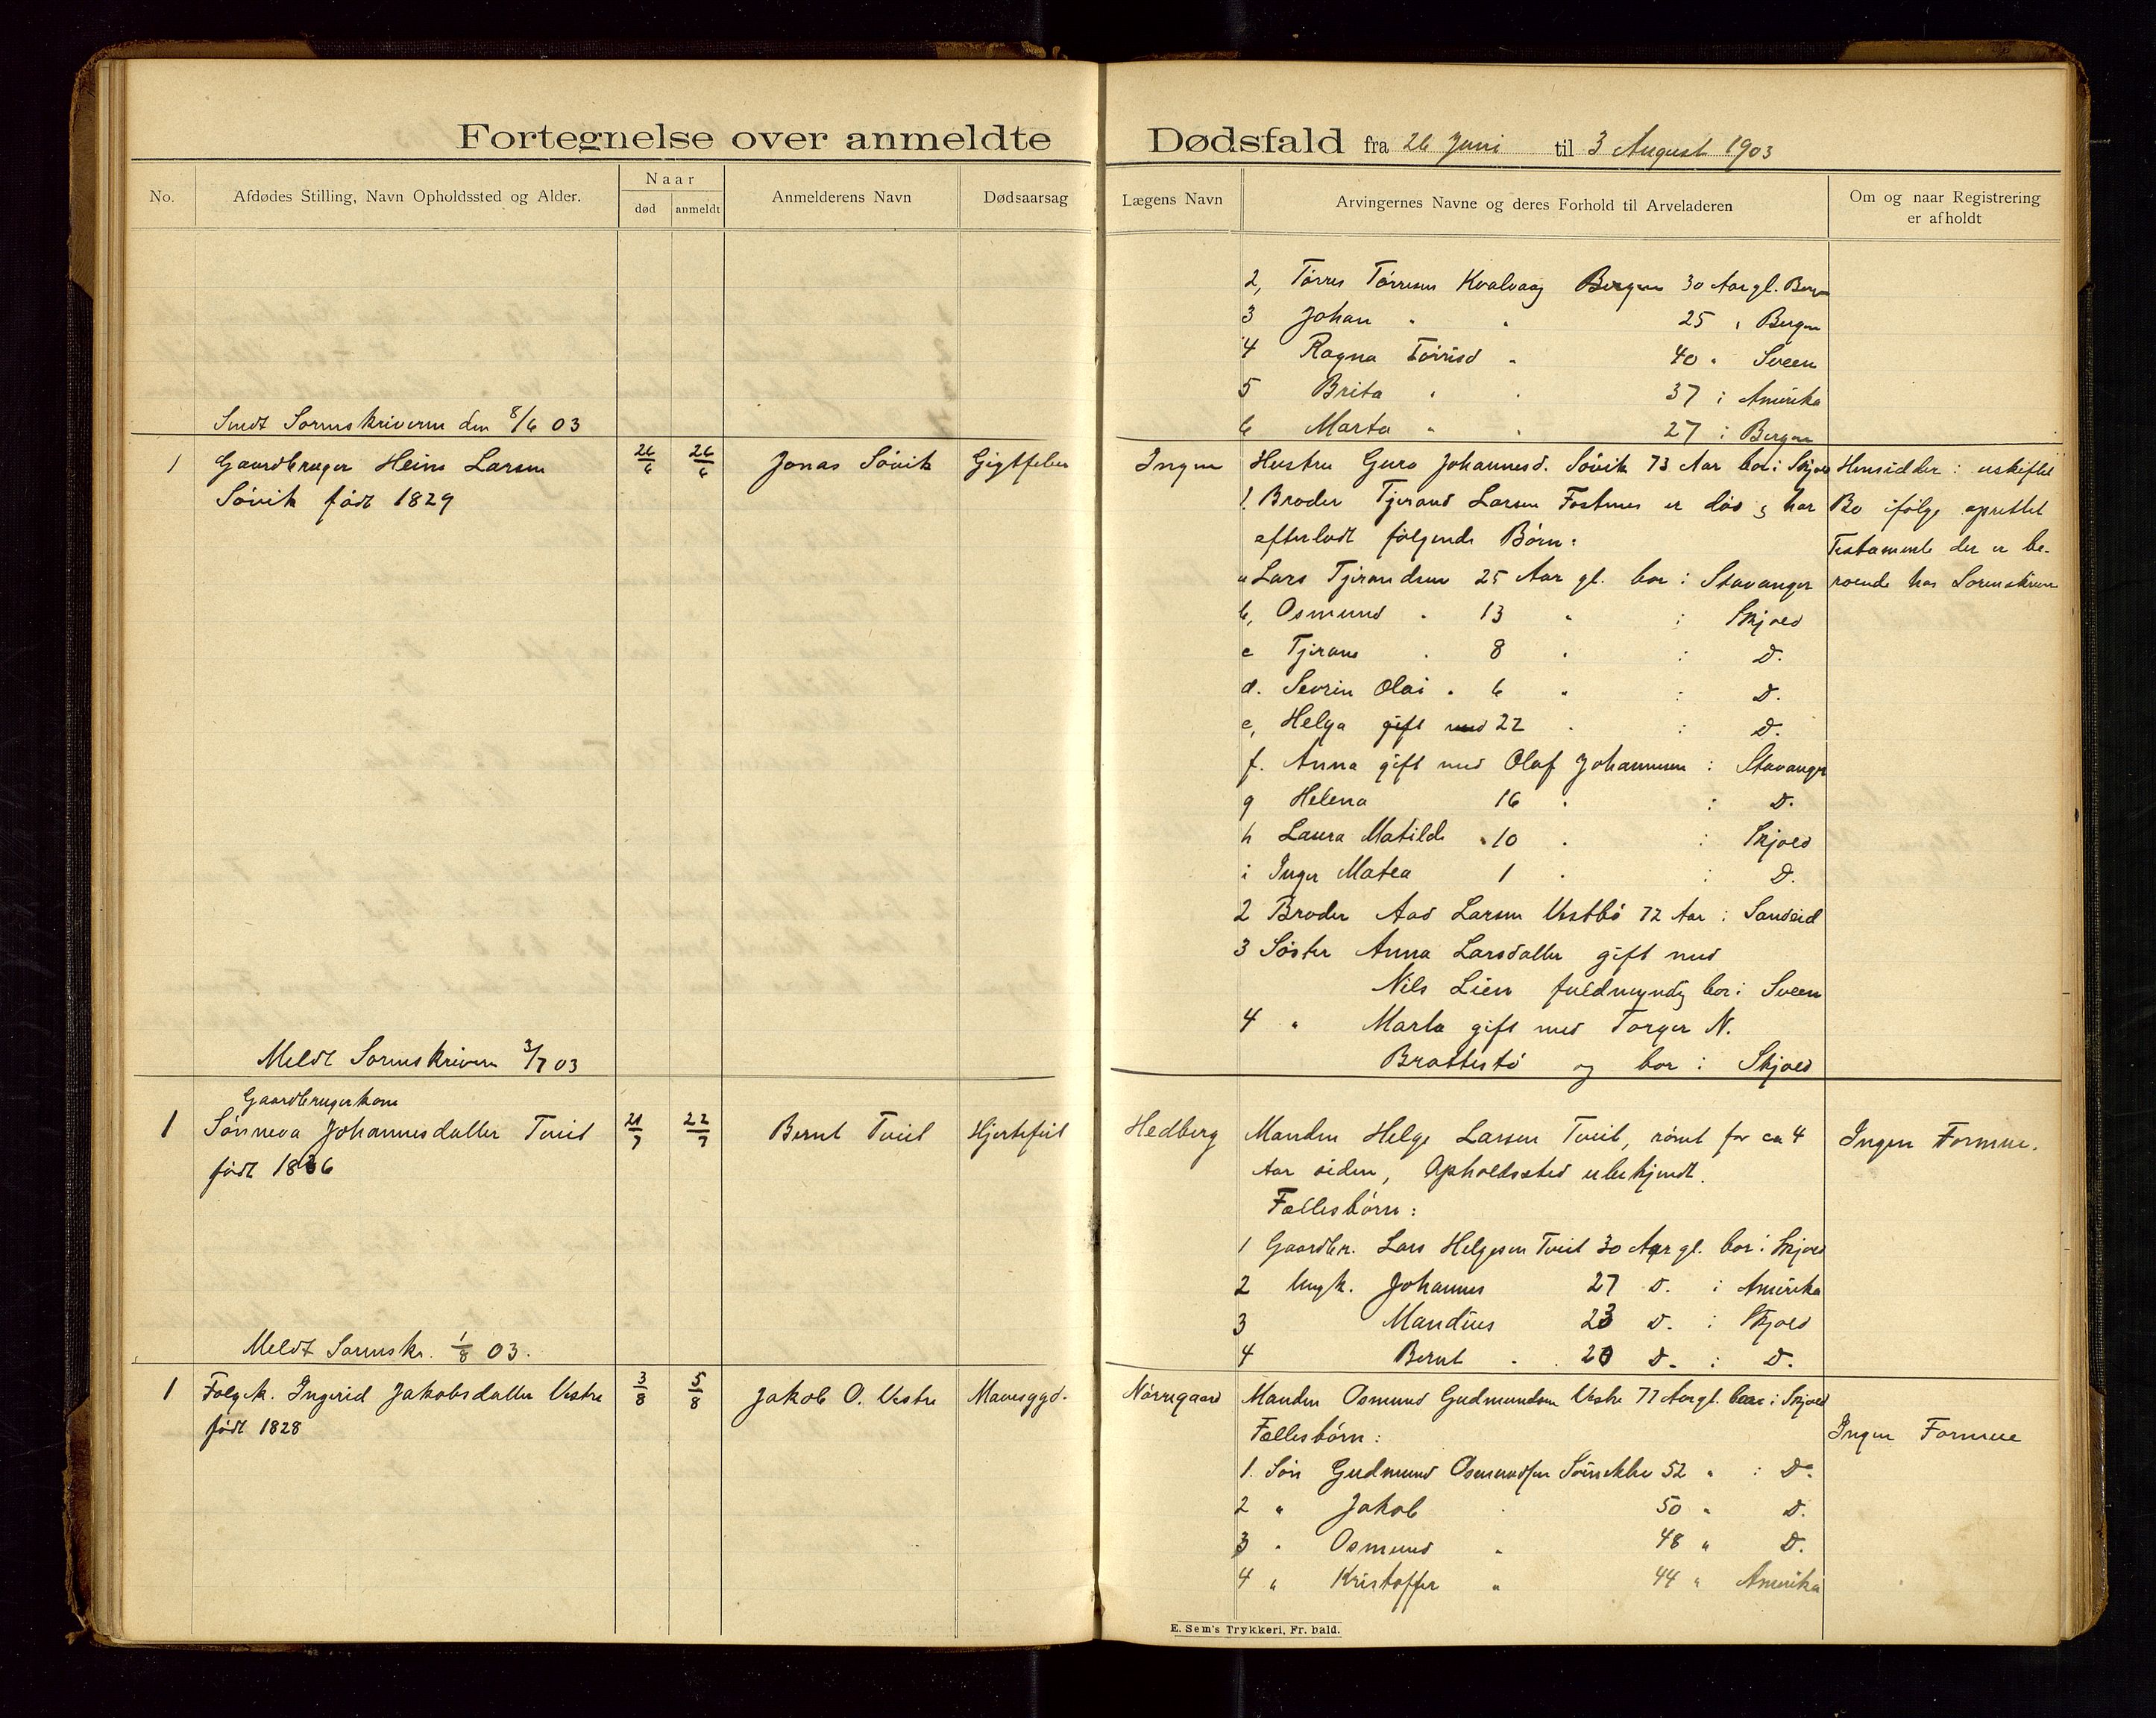 Fortegnelse over anmeldte Dødsfald fra 26 Juni til 3 August 1903
No.
Afdødes Stilling, Navn Opholdssted og Alder.
Naar
død
anmeldt
Anmelderens Navn
Dødsaarsag
Lægens Navn
Arvingernes Navne og deres Forhold til Arveladeren
Om og naar Registrering
er afholdt
2, Tørres Tørresen Kvalvaag Bergen 30 Aar gl. Bergen
3 Johan " " 25 " Bergen
4 Ragna Tørrisd " 40 " Sveen
5 Brita " " 37 i Amerika
6 Marta " " 27 i Bergen
Sendt Sorenskriveren den 8/6 03
1 Gaardbruger Heine Larsen
Søvik født 1829
26/6
26/6
Jonas Søvik
Gigtfeber
Ingen
Hustru Guro Johannesd. Søvik 73 Aar bor i Skjold
1. Broder Tjerand Larsen Fostnes er død & har
efterladt følgende Børn:
a Lars Tjerandsen 25 Aar gl. bor i Stavanger
b, Osmund " 13 " i Skjold
c Tjerand " 8 " i D.
d. Sevrin Olai " 6 " i D.
e, Helga gift med 22 " i D.
f. Anna gift med Olaf Johannesen i Stavanger
g Helena 16 " i D.
h Laura Matilde " 10 " i Skjold
i Inger Matea 1 " i D.
2 Broder Aad Larsen Vestbø 72 Aar i Sandeid
3 Søster Anna Larsdatter gift med
Nils Lien fuldmyndig bor i Sveen
4 " Marta gift med Torger N.
Brattestø og bor i Skjold
Hensidder i uskiftet
Bo ifølge oprettet
Testamente der er be-
roende hos Sorenskriver
Meldt Sorenskriveren 3/7 03
Gaardbrugerkone
1 Sønneva Johannesdatter Tveit
født 1836
21/7
22/7
Bernt Tveit
Hjertefeil
Hedberg
Manden Helge Larsen Tveit, rømt for ca 4
Aar siden, Opholdssted ubekjendt.
Fællesbørn:
1 Gaardbr. Lars Helgesen Tveit 30 Aar gl. bor i Skjold
2 Ungk. Johannes 27 D. i Amerika
3 Mandius 23 D. i Skjold
4 Bernt " 20 D. i D.
Ingen Formue.
Meldt Sorenskr. 1/8 03.
1 Folgek. Ingerid Jakobsdatter Vestre
født 1828
3/8
5/8
Jakob O. Vestre
Mavesygd.
Nørregaard
Manden Osmund Gudmundsen Vestre 77 Aar gl. bor i Skjold
Fællesbørn:
1. Søn Gudmund Osmundsen 52 " i D.
2 " Jakob " 50 " D.
3 " Osmund " 48 " D.
4 " Kristoffer " 44 " Amerika
Ingen Formue
E. Sem's Trykkeri, Fr. hald.